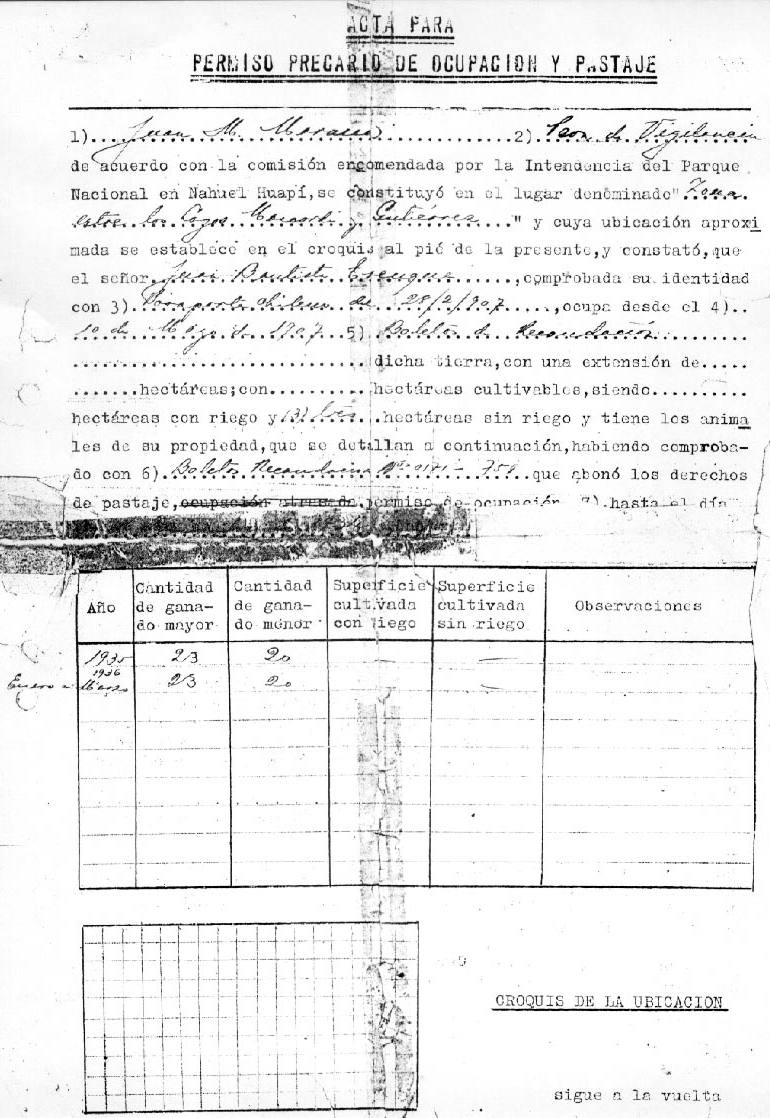 ACTA PARA
PERMISO PRECARIO DE OCUPACION Y PASTAJE
1).....Juan M. .................2). Peon de Vigilancia
de acuerdo con la comisión encomendada por la Intendencia del Parque
Nacional en Nahuel Huapí,se constituyó en el lugar denominado" Zona
entre los Lagos Mascardi y Gutiérrez ...." y cuya ubicación aproxi
mada se establece en el croquis al pié de la presente,y constató,que
el señor.Juan Bautista ......,comprobada su identidad
con 3). Pasaporte Chileno de 28/2/907.....,ocupa desde el 4)..
10 de Mayo de 1907 5) Boletos de Recaudación
..................................dicha tierra,con una extensión de.....
.......hectáreas;con...........hectáreas cultivables,siendo..........
hectáreas con riego y (3) tres ..hectáreas sin riego y tiene los anima
les de su propiedad,que se detallan a continuación,habiendo comproba-
do con 6). Boletos Recaudación Nos. 0171 - 758 ..que abonó los derechos
de pastaje,ocupación atrasada,permiso de ocupación 7).hasta el día
Año
Cantidad de gana- do mayor
Cantidad de gana- do menor
Superficie cultivada con riego
Superficie cultivada sin riego
Observaciones
1935 23 20 — —
1936
Enero a Marzo 23 20 —
CROQUIS DE LA UBICACION
sigue a la vuelta